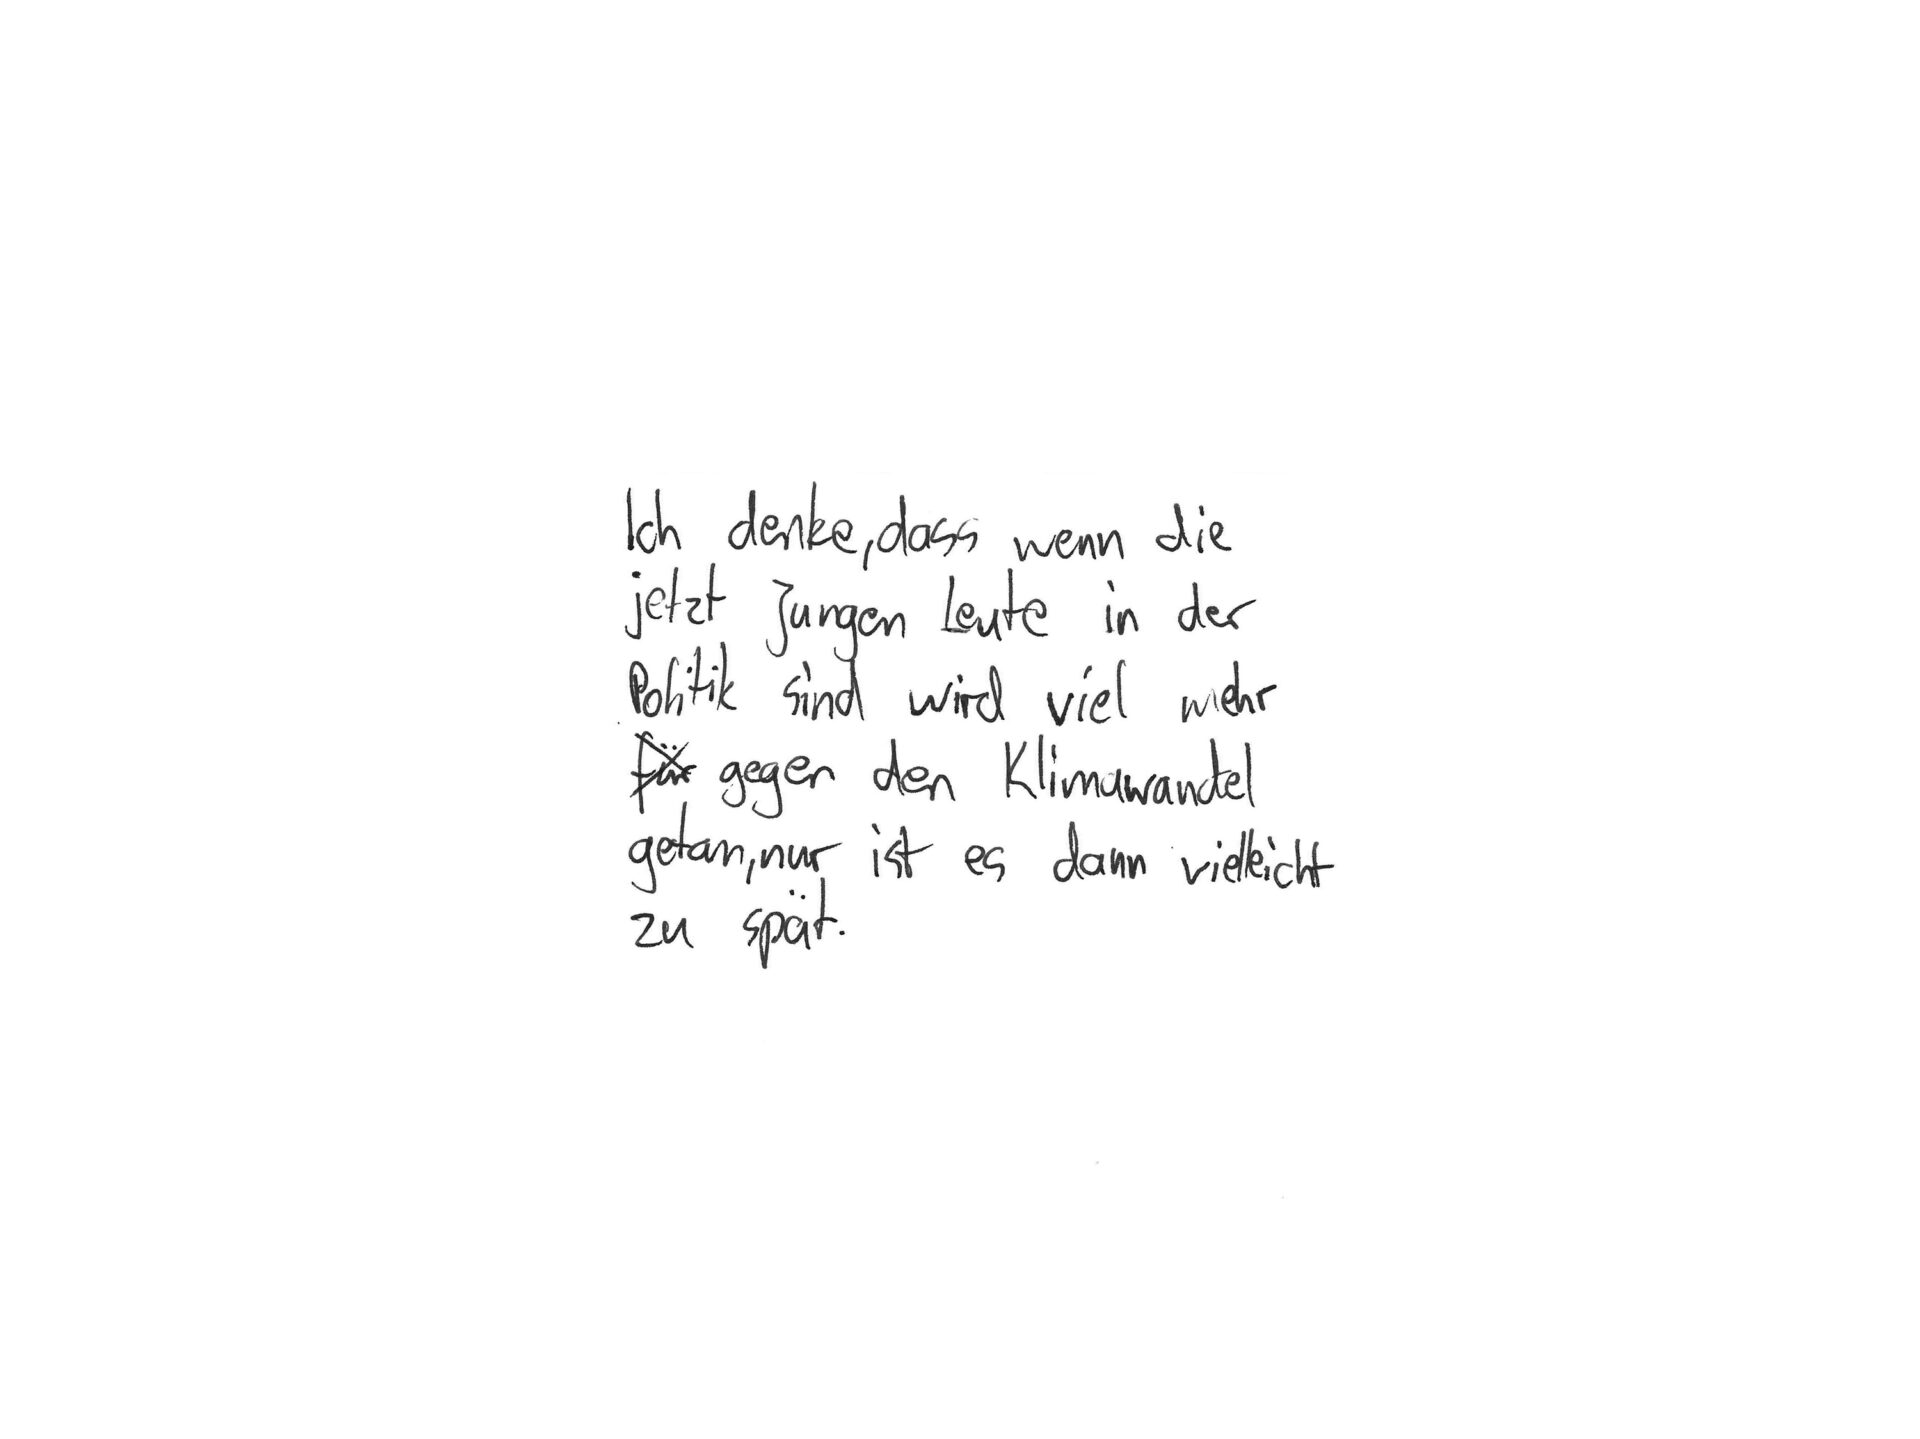 Ich denke, dass wenn die
jetzt Jungen Leute in der
Politik sind wird viel mehr
für gegen den Klimawandel
getan, nur ist es dann vielleicht
zu spät.